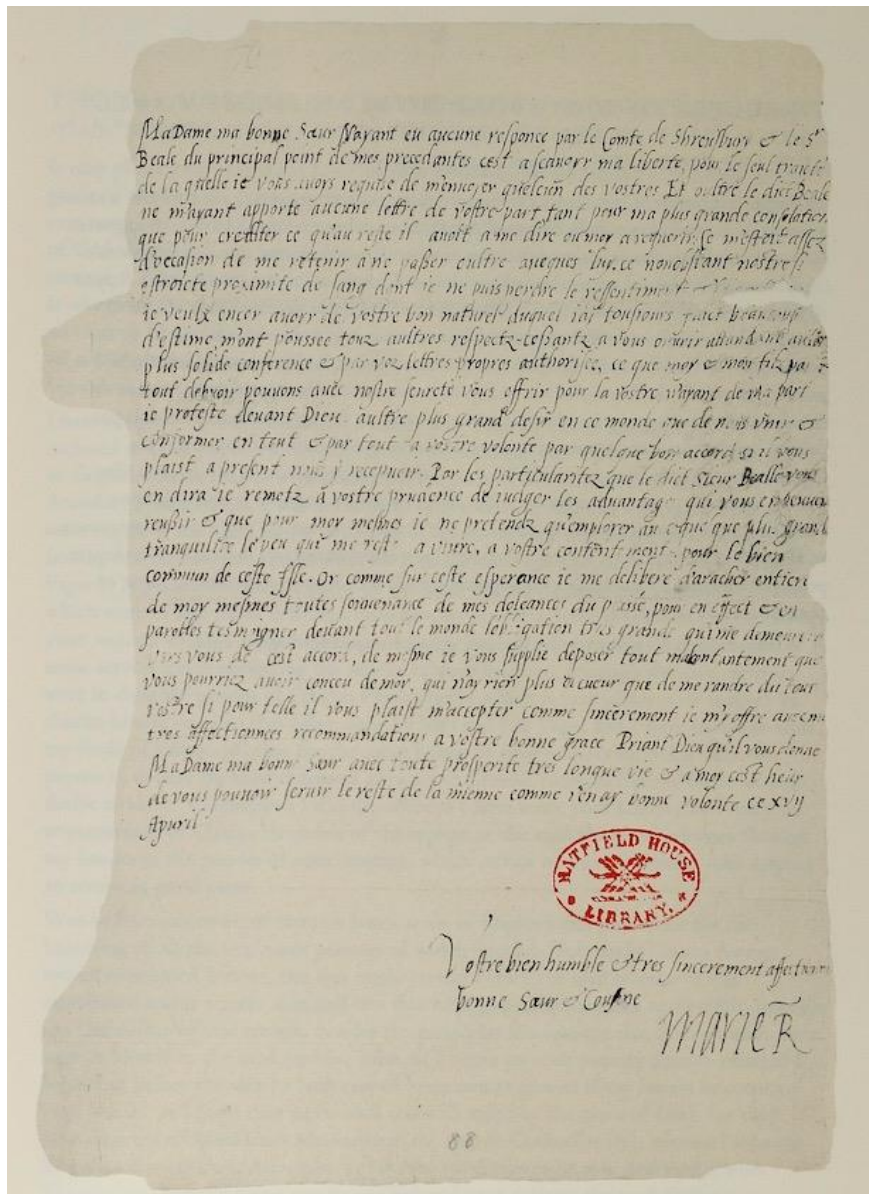 MaDame ma bonne Sœur N'ayant eu aucune responce par le Comte de Shreusbury & le Sr
Beale du principal point de mes precedantes c'est a scauoyr ma liberte, pour le seul traicté
de la quelle ie vous auoys requise de m'enuoyer quelcun des vostres Et oultre le dict Beale
ne m'ayant apporte aucune lettre de vostre part tant pour ma plus grande consolation
que pour crediter ce qu'au reste il auoit a me dire ou moy a requerir. Ce m'estoit assez
d'occasion de me retenir a ne passer oultre aueques luy. ce nonobstant nostre si
estroicte proximite de sang dont ie ne puis perdre le ressentiment &
ie veulx encor auoyr de vostre bon naturel duquel i'ay tousiours faict beaucoup
d'estime, m'ont poussee touz aultres respectz cessantz a vous ouurir attendant
plus solide conference & par voz lettres propres authorisee, ce que moy & mon filz par
tout debuoir pouuons auec nostre seureté vous offrir pour la vostre, n'ayant de ma part
ie proteste deuant Dieu aultre plus grand desir en ce monde que de nous vnir &
conformer en tout & par tout a vostre volonte par quelque bon accord si il vous
plaist a present nous y recepuoir. Par les particularitez que le dict Sieur Bealle vous
en dira ie remetz a vostre prudence de iudger les aduantages qui vous en peuuent
reussir & que pour moy mesmes ie ne pretendz qu'employer auecque plus grande
tranquilite le peu qui me reste a viure, a vostre contentment, pour le bien
commun de ceste Isle. Or comme sur ceste esperance ie me delibere d'aracher
de moy mesmes toutes souuenance de mes doleances du passé, pour en effect & en
parolles tesmoigner deuant tout le monde l'obligation tres grande qui me demeurera
vers vous de cest accord, de mesme ie vous supplie deposer tout malcontantement que
vous pourriez auoir conceu de moy, qui n'ay rien plus a cueur que de me randre du tout
vostre si pour telle il vous plaist m'accepter comme sincerement ie m'y offre
tres affectionnees recommandations a vostre bonne grace Priant Dieu qu'il vous donne
MaDame ma bonne Sœur auec toute prosperite tres longue vie & a moy cest heur
de vous pouuoir seruir le reste de la mienne comme i'en ay bonne volonte ce xvij
Apuril
HATFIELD HOUSE
LIBRARY.
Vostre bien humble & tres sincerement affectionnee
bonne Sœur & Cousine
Marie R
88